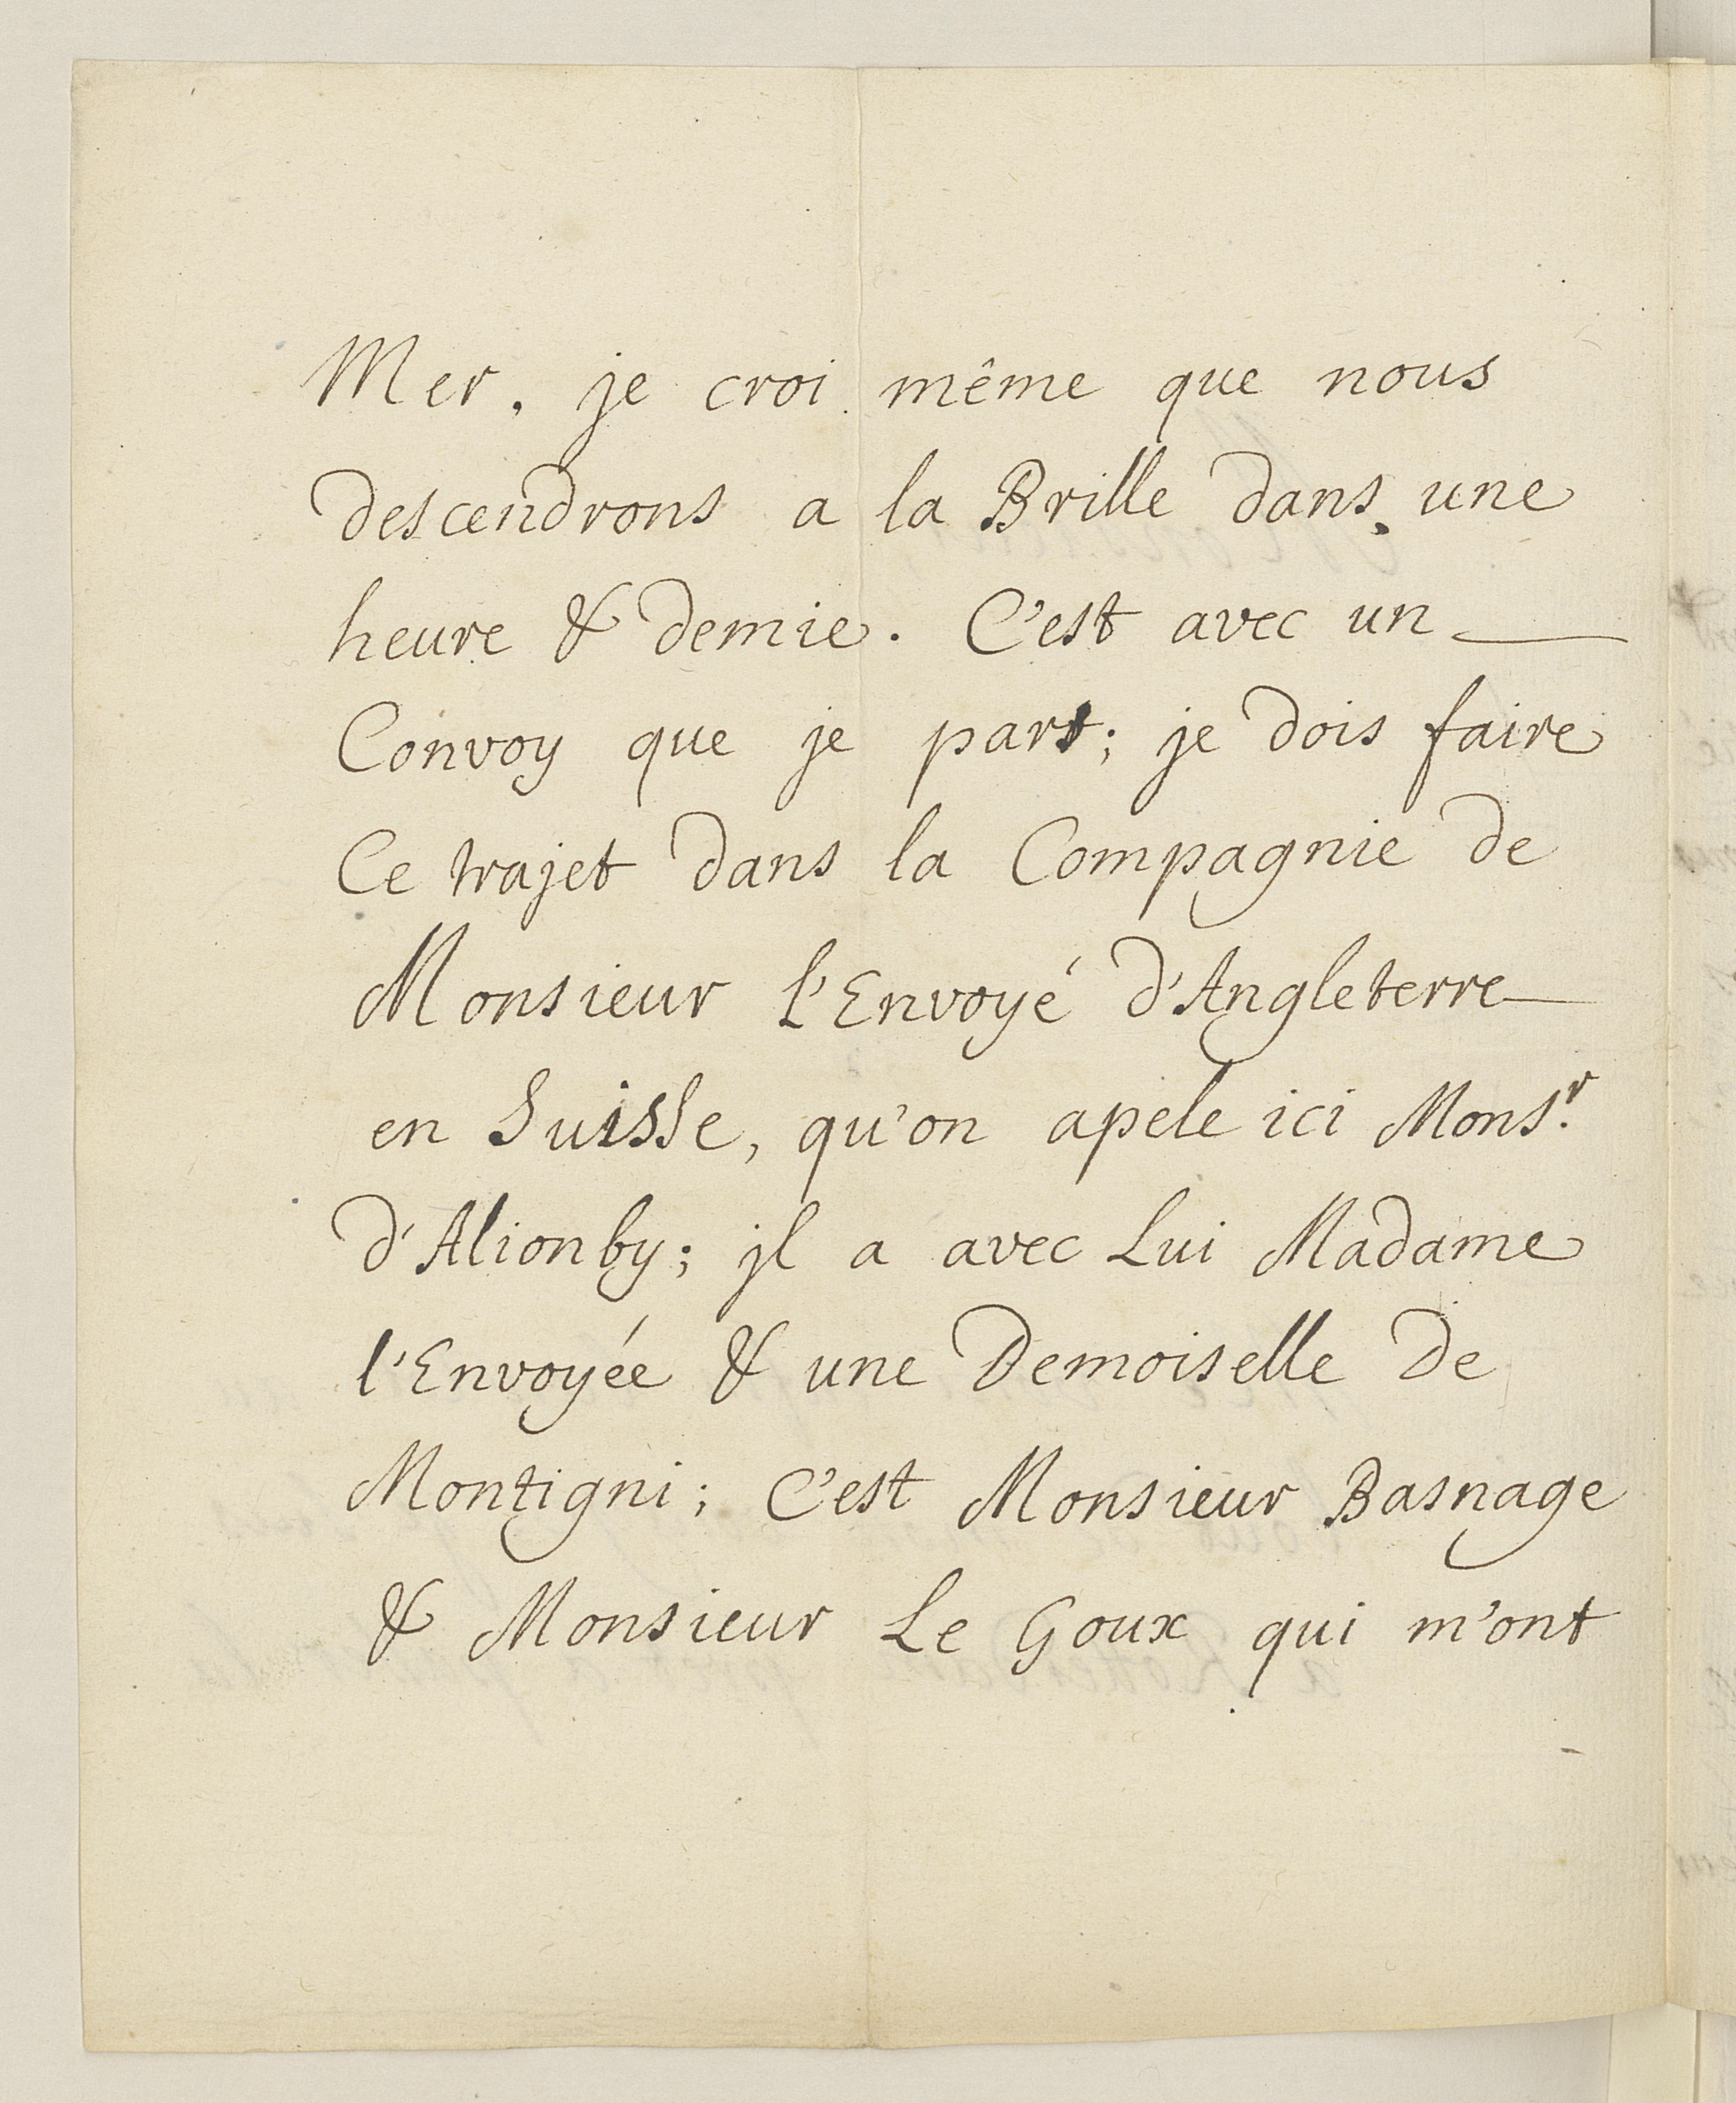 Mer. je croi même que nous
descendrons a la Brille dans une
heure & demie. C'est avec un
Convoy que je pars; je dois faire
Ce trajet dans la Compagnie de
Monsieur l'Envoyé d'Angleterre
en Suisse, qu'on apele ici Monsr.
d'Alionby; jl a avec Lui Madame
l'Envoyée & une Demoiselle de
Montigni; C'est Monsieur Basnage
& Monsieur Le Goux qui m'ont